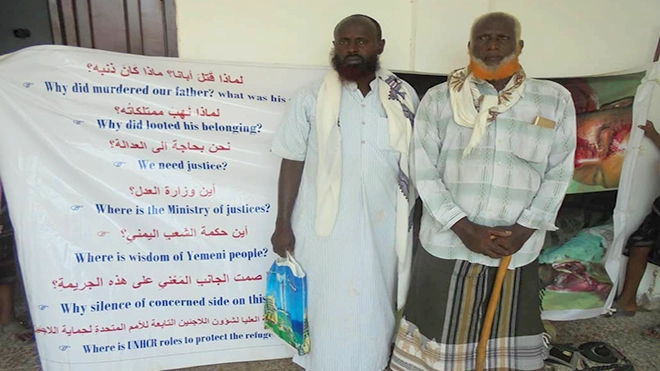 لماذا قتل أبانا؟ ماذا كان ذنبه؟
Why did murdered our father? what was his
لماذا نهب ممتلكاته؟
Why did looted his belonging?
نحن بحاجة الى العدالة؟
We need justice?
أين وزارة العدل؟
Where is the Ministry of justices?
أين حكمة الشعب اليمني؟
Where is wisdom of Yemeni people?
صمت الجانب المعني على هذه الجريمة؟
Why silence of concerned side on this
العليا لشؤون اللاجئين التابعة للأمم المتحدة لحماية اللاجئين
Where is UNHCR roles to protect the refuge